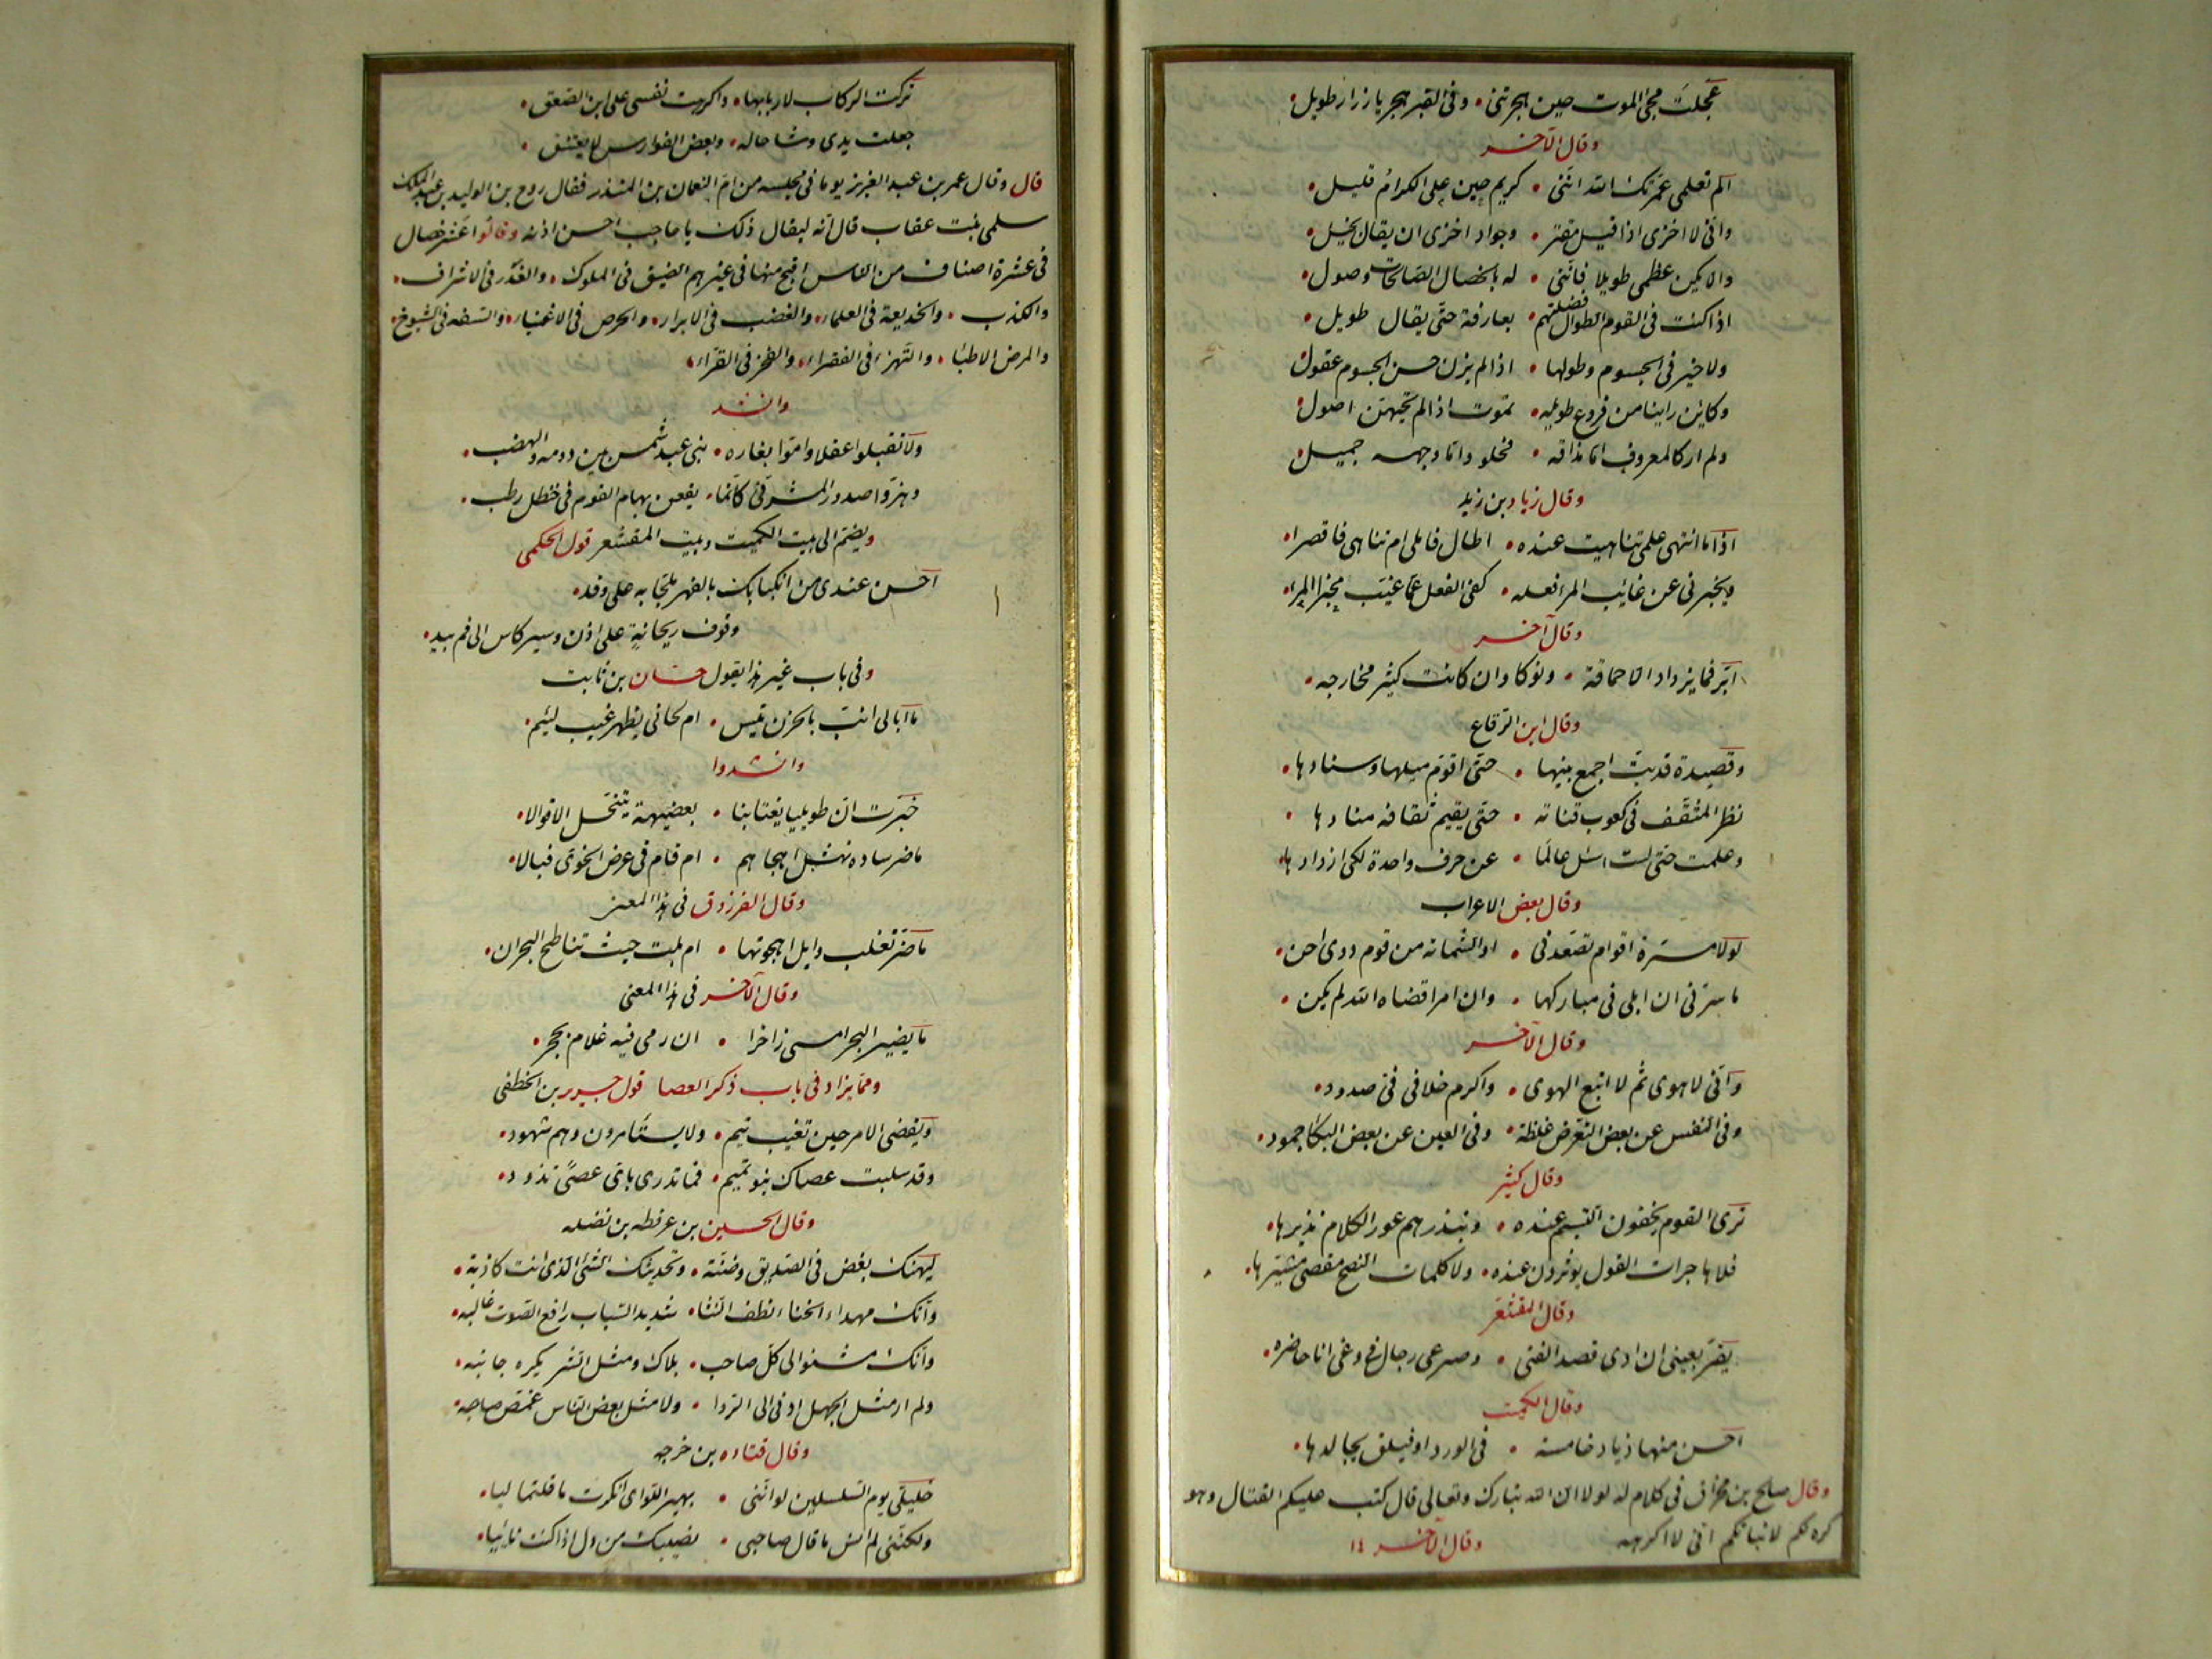 عجلت مجئ الموت حين هجرتنى • وفى القبر هجر يا زرار طويل •
وقال الآخر
الم تعلمى عمرتك الله اننى • كريم حين على الكرام قليل •
وانى لا اخزى اذا قيل مقتر • وجواد اخزى ان يقال بخيل •
والا يكن عظمى طويلا فاننى • له بالخصال الصالحات وصول •
اذا كنت فى القوم الطوال فضلتهم • بعارفة حتى يقال طويل •
ولا خير فى الجسوم وطولها • اذا لم يزن حسن الجسوم عقول •
وكاين راينا من فروع طويله • تموت اذا لم تحيهن اصول •
ولم ار كالمعروف اما مذاقه • فحلو واما وجهه جميل •
وقال زياد بن زيد
اذا ما انتهى علمى تناهيت عنده • اطال فاملى ام تناهى فاقصرا •
ويخبرنى عن غائب المر فعله • كفى الفعل عما غيب المرء مخبرا •
وقال آخر
ابر فما يزداد الا حماقة • ونوكا وان كانت كثير مخارجه •
وقال ابن الرقاع
وقصيدة قد بت اجمع بينها • حتى اقوم ميلها وسنادها •
نظر المثقف فى كعوب قناته • حتى يقيم ثقافه منادها •
وعلمت حتى لست اسئل عالما • عن حرف واحدة لكى ازدادها •
وقال بعض الاعراب
لولا مسرة اقوام تصعدنى • او الشماته من قوم ذوى احن •
ما سرنى ان ابلى فى مباركها • وان امرا قضاه الله لم يكن •
وقال الآخر
وانى لا هوى ثم لا اتبع الهوى • واكرم خلانى فى صدود •
وفى النفس عن بعض التعرض غلظة • وفى العين عن بعض البكا جمود •
وقال كثير
ترى القوم يخفون التبسم عنده • وينذرهم عور الكلام نذيرها •
فلا هاجرات القول يوثرون عنده • ولا كلمات النصح مقصى مشيرها •
وقال المقشعر
يقر بعينى ان ارى قصد القنى • وصرعى رجال فى وغى انا حاضره •
وقال الكميت
احسن منها ذياد خامسة • فى الورد او فيلق يجالدها •
وقال صالح بن مخراق فى كلام له لولا ان الله تبارك وتعالى قال كتب عليكم القتال وهو
كره لكم لانباتكم انى لا اكرهه وقال الآخر
تركت الركاب لاربابها • واكرهت نفسى على ابن الصعق •
جعلت يدى وشاحا له • وبعض الفوارس لا يعتنق •
قال وقال عمر بن عبد العزيز يوما فى مجلسه من ام النعمان بن المنذر فقال روح بن الوليد بن عبد الملك
سلمى بنت عقاب قال انه ليقال ذلك يا حاجب احسن اذنه وقالوا عشر خصال
فى عشرة اصناف من الناس اقبح منها فى غيرهم الضيق فى الملوك • والغدر فى الاشراف •
والكذب • والخديعة فى العلماء • والغضب فى الابرار • والحرص فى الاغنياء • والسفه فى الشيوخ •
والمرض الاطبا • والتهزء فى الفقراء • والفخر فى القراء •
وانشد
ولا تقبلوا عقلا وامّوا بغاره • بنى عبد شمس بين دومه والهضب •
وهزوا صدور المشرفى كانما • يقعن بهام القوم فى حنظل رطب •
ويضم الى بيت الكميت وبيت المقشعر قول الحكمى
احسن عندى من انكبابك بالفهر ملحا به على وتد •
وقوف ريحانة على اذن وسير كاس الى فم بيد •
وفى باب غير هذا يقول حسان بن ثابت
ما ابالى انب بالحزن تيس • ام لحانى بظهر غيب لئيم •
وانشدوا
خبرت ان طويلبا يغتابنا • بعضيهة يتنحل الاقوالا •
ما ضر ساده نهشل اهجاهم • ام قام فى عرض الخوى فبالا •
وقال الفرزدق فى هذا المعنى
ما ضر تغلب وايل اهجوتها • ام بلت حيث تناطح البحران •
وقال الآخر فى هذا المعنى
ما يضير البحر امسى زاخرا • ان رمى فيه غلام بحجر •
ومما يزاد فى باب ذكر العصا قول جرير بن الخطفى
ويقضى الامر حين تغيب تيم • ولا يستامرون وهم شهود •
وقد سلبت عصاك بنو تميم • فما تدرى باى عصى تذود •
وقال الحسين بن عرفطه بن نضله
ليهنك بغض فى الصديق وضنة • وتحديثك الشئ الذى انت كاذبه •
وانك مهداء الخنا نطف النثا • شديد السباب رافع الصوت غالبه •
وانك مشنو الى كل صاحب • بلاك ومثل الشر يكره جانبه •
ولم ار مثل الجهل ادنى الى الردا • ولا مثل بعض الناس غمص صاحبه •
وقال قتاده بن خرجه
خليلى يوم السلسلين لو اننى • بهبر اللوى انكرت ما قلتما ليا •
ولكننى لم انس ما قال صاحبى • نصيبك من ذل اذا كنت نائيا •